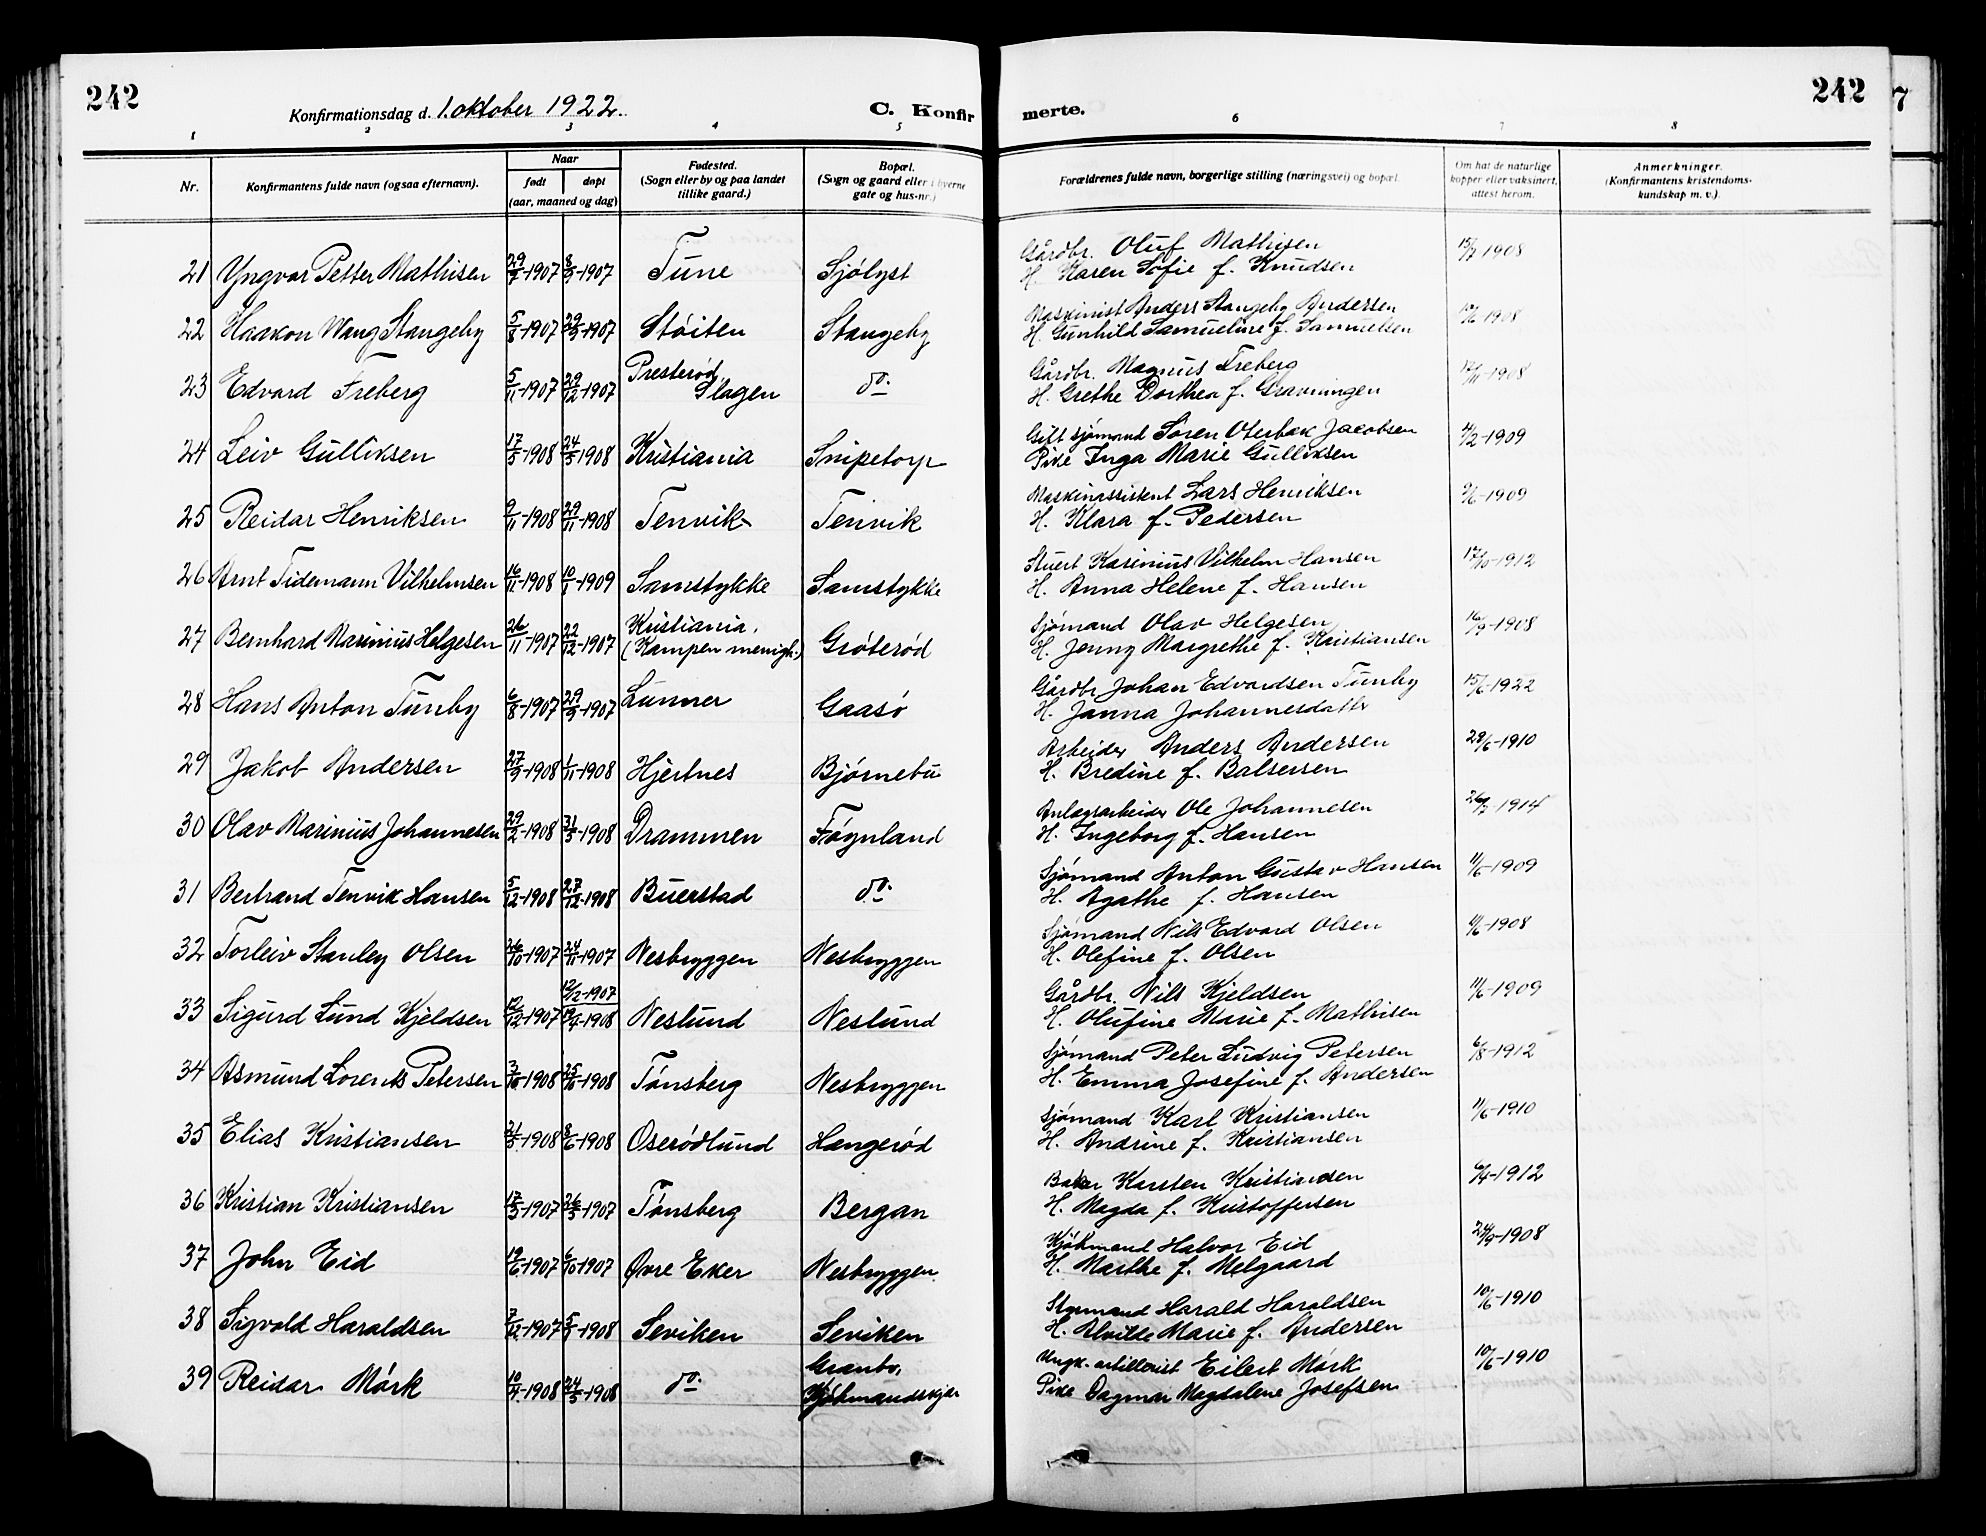 242
Konfirmationsdag d. 1. oktober 1922.
C. Konfir
merte.
242
7
1 2 3 4 5 6 7 8
Nr.
Konfirmantens fulde navn (ogsaa efternavn).
Naar
født døpt
(aar, maaned og dag)
Fødested.
(Sogn eller by og paa landet
tillike gaard.)
Bopæl.
(Sogn og gaard eller i byerne
gate og hus-nr.)
Forældrenes fulde navn, borgerlige stilling (næringsvei) og bopæl.
Om hat de naturlige
kopper eller vaksinert,
attest herom.
Anmerkninger.
(Konfirmantens kristendoms-
kundskap m. v.).
21 Yngvar Petter Mathisen 29/7-1907 8/9-1907 Tune Sjølyst Gårdbr. Oluf Mathisen
H. Karen Sofie f. Knudsen 15/7-1908
22 Haakon Wang Stangeby 5/8-1907 29/9-1907 Støiten Stangeby Maskinist Anders Stangeby Andersen
H. Gunhild Samueline f. Samuelsen 12/6-1908
23 Edvard Freberg 5/11-1907 29/12-1907 Presterød Slagen do. Gårdbr. Magnus Freberg
H. Grethe Dorthea f. Gravningen 12/11-1908
24 Leiv Gulliksen 17/3-1908 24/5-1908 Kristiania Snipetorp Gift sjømand Søren Oterbæk Jacobsen
Pike Inga Marie Gulliksen 4/2-1909
25 Reidar Henriksen 9/11-1908 29/11-1908 Tenvik Tenvik Maskinassistent Lars Henriksen
H. Klara f. Pedersen 9/6-1909
26 Arnt Tidemann Vilhelmsen 16/11-1908 10/1-1909 Samstykke Samstykke Stuert Karinius Vilhelm Hansen
H. Anna Helene f. Hansen 17/10-1912
27 Bernhard Marinius Helgesen 26/11-1907 22/12-1907 Kristiania. (Kampen menigh.) Grøterød Sjømand Olav Helgesen
H. Jenny Margrethe f. Kristiansen 16/9-1908
28 Hans Anton Tunby 6/8-1907 29/9-1907 Lunner Gaasø Gårdbr Johan Edvardsen Tunby
H. Janna Johannesdatter 15/6-1922
29 Jakob Andersen 27/9-1908 1/11-1908 Hjertnes Bjørnebu Arbeider Anders Andersen
H. Bredine f. Balsersen 28/6-1910
30 Olav Marinius Johannesen 29/2-1908 31/5-1908 Drammen Føynland Anlægsarbeider Ole Johannesen
H. Ingeborg f. Hansen 26/7-1914
31 Bertrand Tenvik Hansen 5/12-1908 27/12-1908 Buerstad do. Sjømand Anton Gustav Hansen
H. Agathe f. Hansen 11/6-1909
32 Torleiv Stanley Olsen 26/10-1907 24/11-1907 Nesbryggen Nesbryggen Sjømand Nils Edvard Olsen
H. Olefine f. Olsen 11/6-1908
33 Sigurd Lund Kjeldsen 12/12-1907 12/12-1907 19/4-1908 Neslund Neslund Gårdbr. Nils Kjeldsen
H. Olufine Marie f. Mathisen 11/6-1909
34 Asmund Lorents Petersen 3/10-1908 25/10-1908 Tønsberg Nesbryggen Sjømand Peter Ludvig Petersen
H. Emma Josefine f. Andersen 6/8-1912
35 Elias Kristiansen 21/3-1908 8/6-1908 Oserødlund Hangerød Sjømand Karl Kristiansen
H. Andrine f. Kristiansen 11/6-1910
36 Kristian Kristiansen 17/3-1907 26/5-1907 Tønsberg Bergan Baker Karsten Kristiansen
H. Magda f. Kristoffersen 6/4-1912
37 John Eid 19/6-1907 6/10-1907 Øvre Eker Nesbryggen Kjøbmand Halvor Eid
H. Marthe f. Melgaard 24/9-1908
38 Sigvald Haraldsen 7/12-1907 5/7-1908 Seviken Seviken Styrmand Harald Haraldsen
H. Alvilde Marie f. Andersen 10/6-1910
39 Reidar Mørk 10/4-1908 24/5-1908 do. Granbo, Kjøbmandskjær Ungk. artillerist Eilert Mørk
Pike Dagmar Magdalene Josefsen 10/6-1910